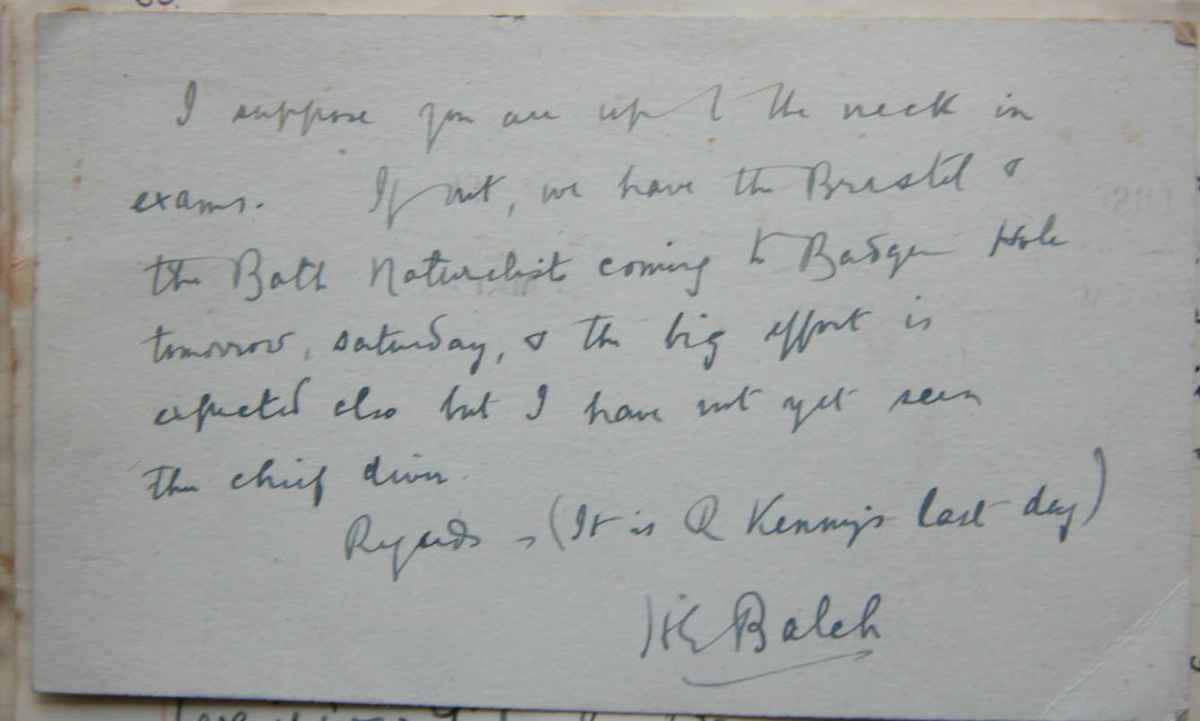 I suppose you are up to the neck in
exams. If not, we have the Bristol &
the Bath Naturalists coming to Badger Hole
tomorrow, saturday, & the big effort is
expected also but I have not yet seen
the chief diver.
Regards – (It is R Kenny's last day)
HE Balch